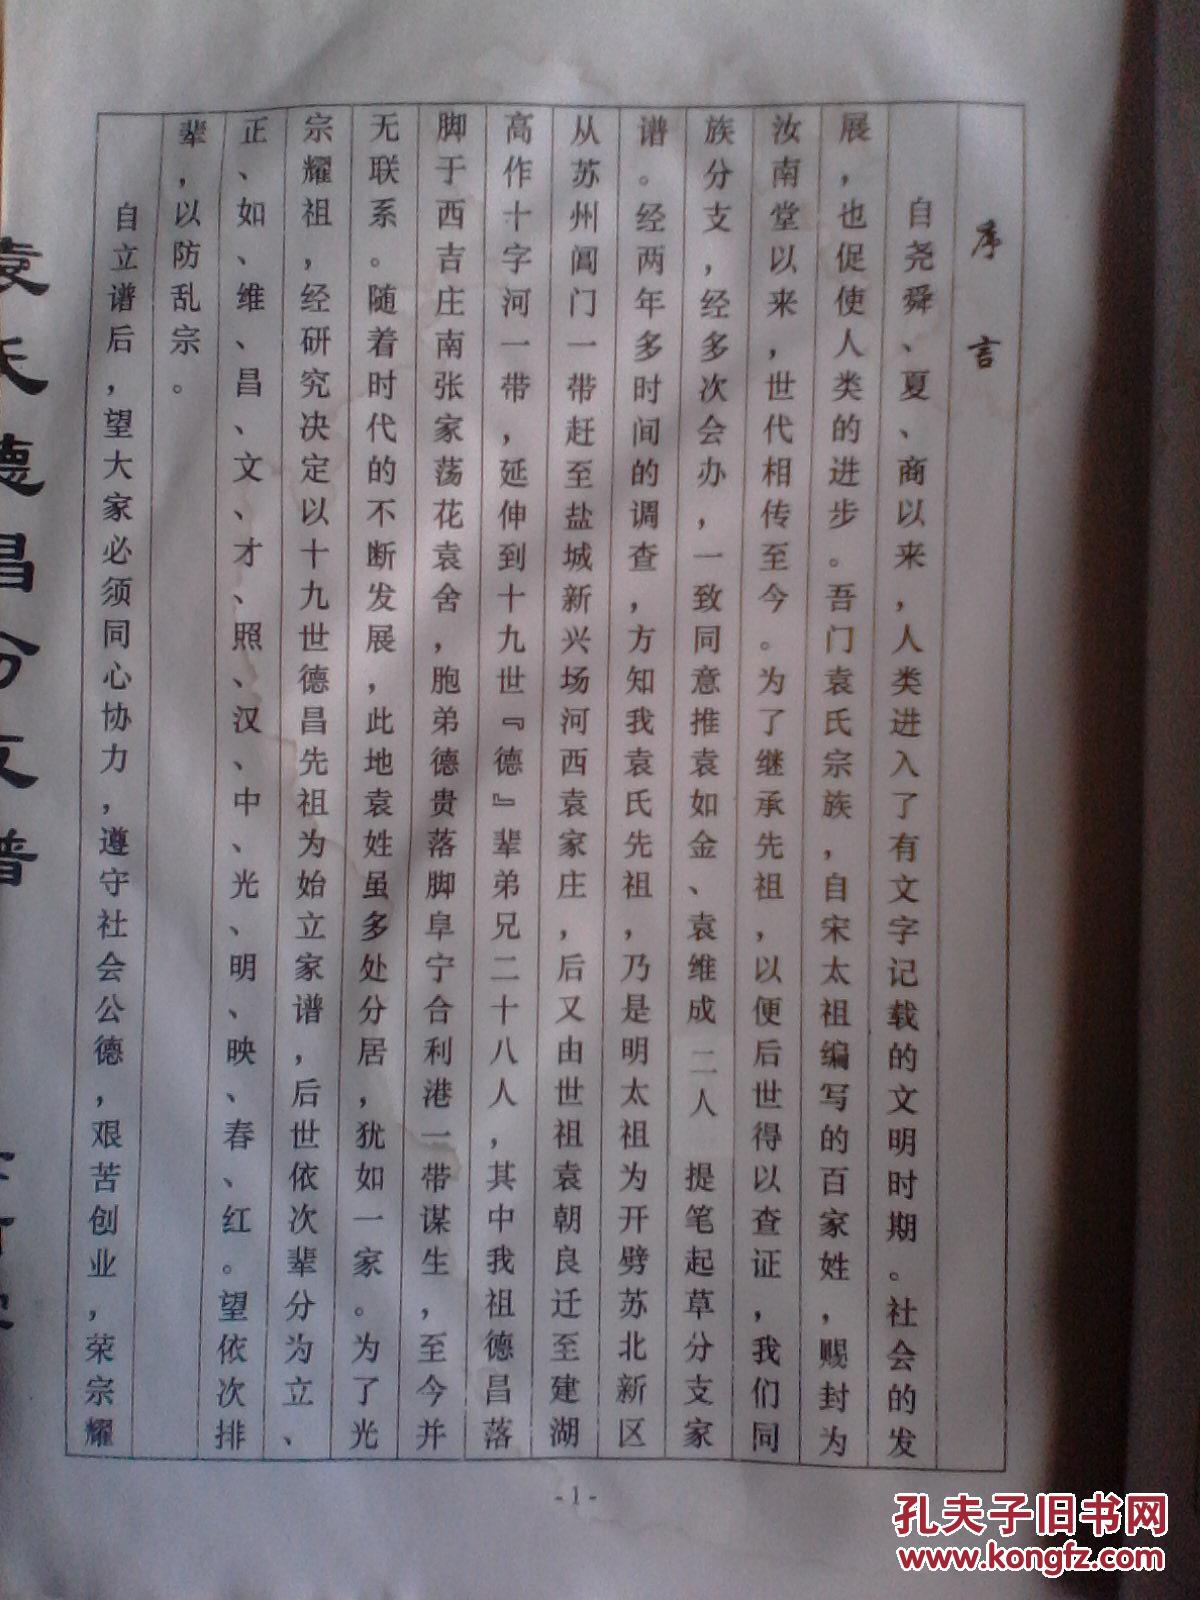 序言
自尧舜、夏、商以来，人类进入了有文字记载的文明时期。社会的发
展，也促使人类的进步。吾门袁氏宗族，自宋太祖编写的百家姓，赐封为
汝南堂以来，世代相传至今。为了继承先祖，以便后世得以查证，我们同
族分支，经多次会办，一致同意推袁如金、袁维成二人提笔起草分支家
谱。经两年多时间的调查，方知我袁氏先祖，乃是明太祖为开劈苏北新区
从苏州阊门一带赶至盐城新兴场河西袁家庄，后又由世祖袁朝良迁至建湖
高作十字河一带，延伸到十九世『德』辈弟兄二十八人，其中我祖德昌落
脚于西吉庄南张家荡花袁舍，胞弟德贵落脚阜宁合利港一带谋生，至今并
无联系。随着时代的不断发展，此地袁姓虽多处分居，犹如一家。为了光
宗耀祖，经研究决定以十九世德昌先祖为始立家谱，后世依次辈分为立、
正、如、维、昌、文、才、照、汉、中、光、明、映、春、红。望依次排
辈，以防乱宗。
自立谱后，望大家必须同心协力，遵守社会公德，艰苦创业，荣宗耀
-1-
袁氏德昌分支谱
孔夫子旧书网
www.kongfz.com